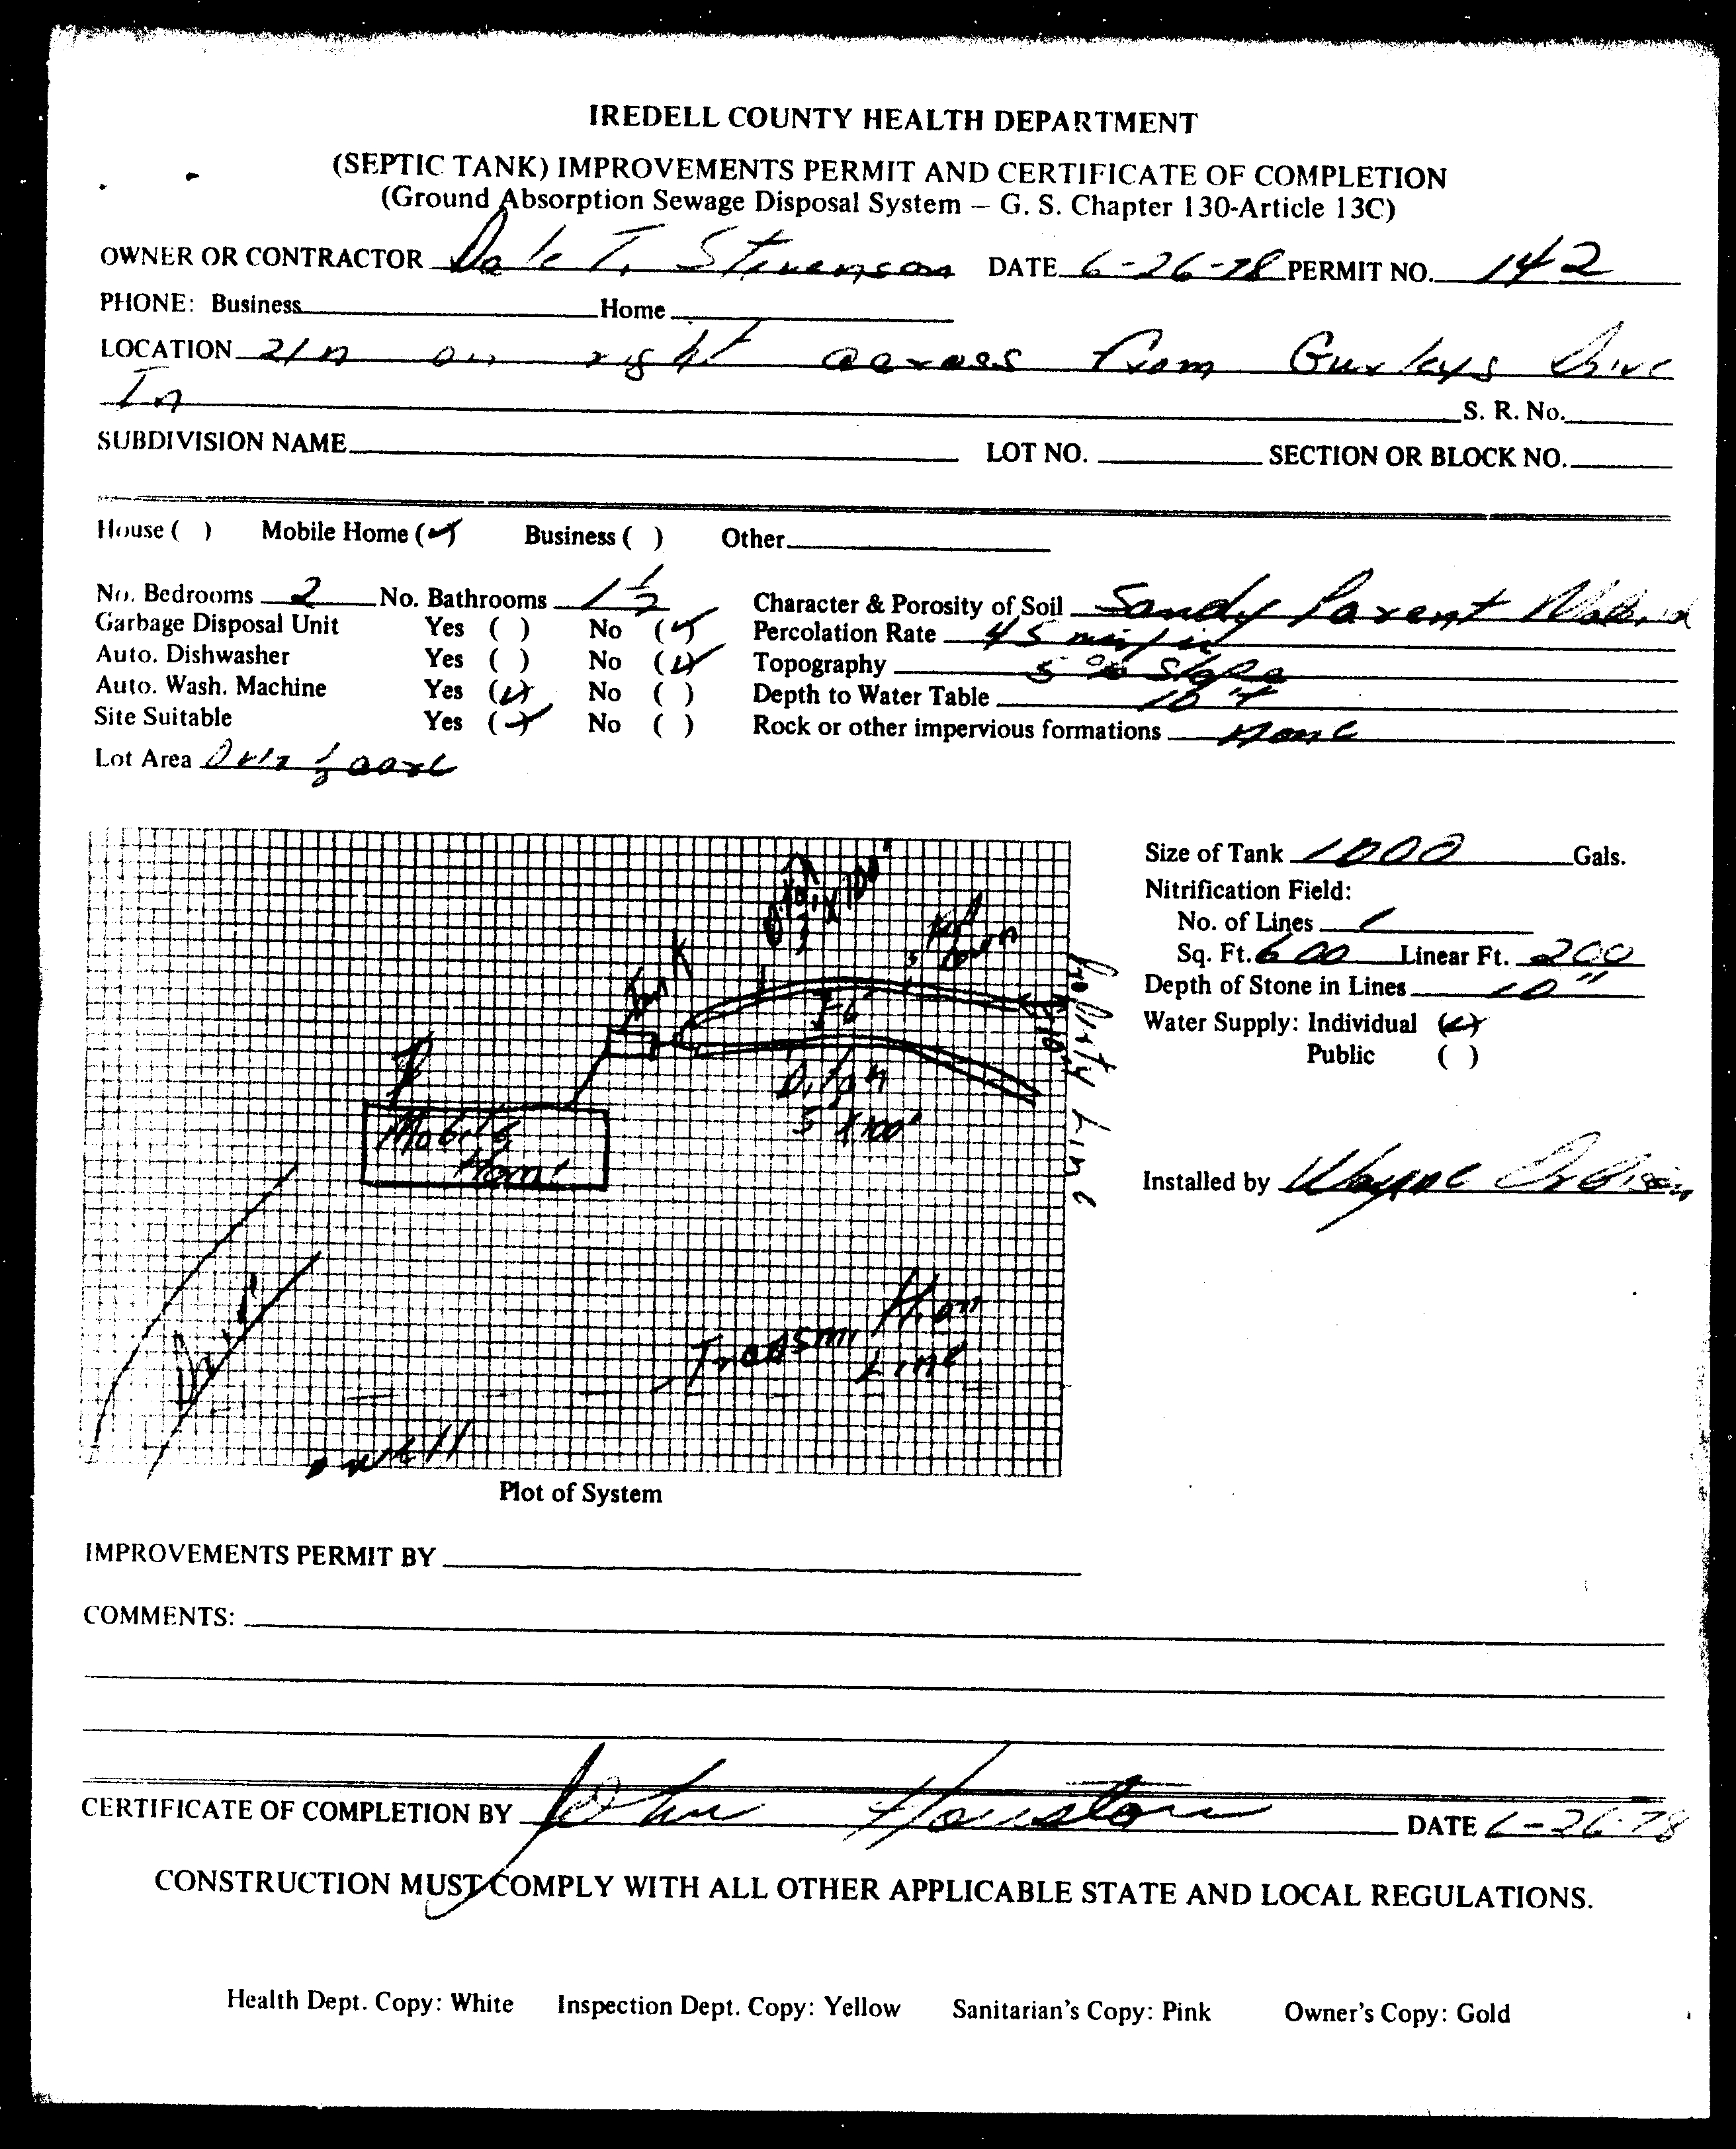 IREDELL COUNTY HEALTH DEPARTMENT
(SEPTIC TANK) IMPROVEMENTS PERMIT AND CERTIFICATE OF COMPLETION
(Ground Absorption Sewage Disposal System – G. S. Chapter 130-Article 13C)
OWNER OR CONTRACTOR Dale T. Stevenson DATE 6-26-78 PERMIT NO. 142
PHONE: Business Home
LOCATION 21n on right across from Gurleys Drive
In S. R. No.
SUBDIVISION NAME LOT NO. SECTION OR BLOCK NO.
House ( ) Mobile Home (✓) Business ( ) Other
No. Bedrooms 2 No. Bathrooms 1 1/2 Character & Porosity of Soil Sandy Parent
Garbage Disposal Unit Yes ( ) No (✓) Percolation Rate 45 min/in
Auto. Dishwasher Yes ( ) No (✓) Topography 5 % Slope
Auto. Wash. Machine Yes (✓) No ( ) Depth to Water Table 10 +
Site Suitable Yes (✓) No ( ) Rock or other impervious formations none
Lot Area Over 1/2 acre
Size of Tank 1000 Gals.
Nitrification Field:
No. of Lines 1
Sq. Ft. 600 Linear Ft. 200
Depth of Stone in Lines 10"
Water Supply: Individual (✓)
Public ( )
Installed by Wayne
Ditch
3' x 100'
Tank
down
Property Line
10'
Ditch
x 100'
Mobile
Home
Drive
Transmition
Line
well
Plot of System
IMPROVEMENTS PERMIT BY
COMMENTS:
CERTIFICATE OF COMPLETION BY John Houston DATE 6-26-78
CONSTRUCTION MUST COMPLY WITH ALL OTHER APPLICABLE STATE AND LOCAL REGULATIONS.
Health Dept. Copy: White Inspection Dept. Copy: Yellow Sanitarian's Copy: Pink Owner's Copy: Gold